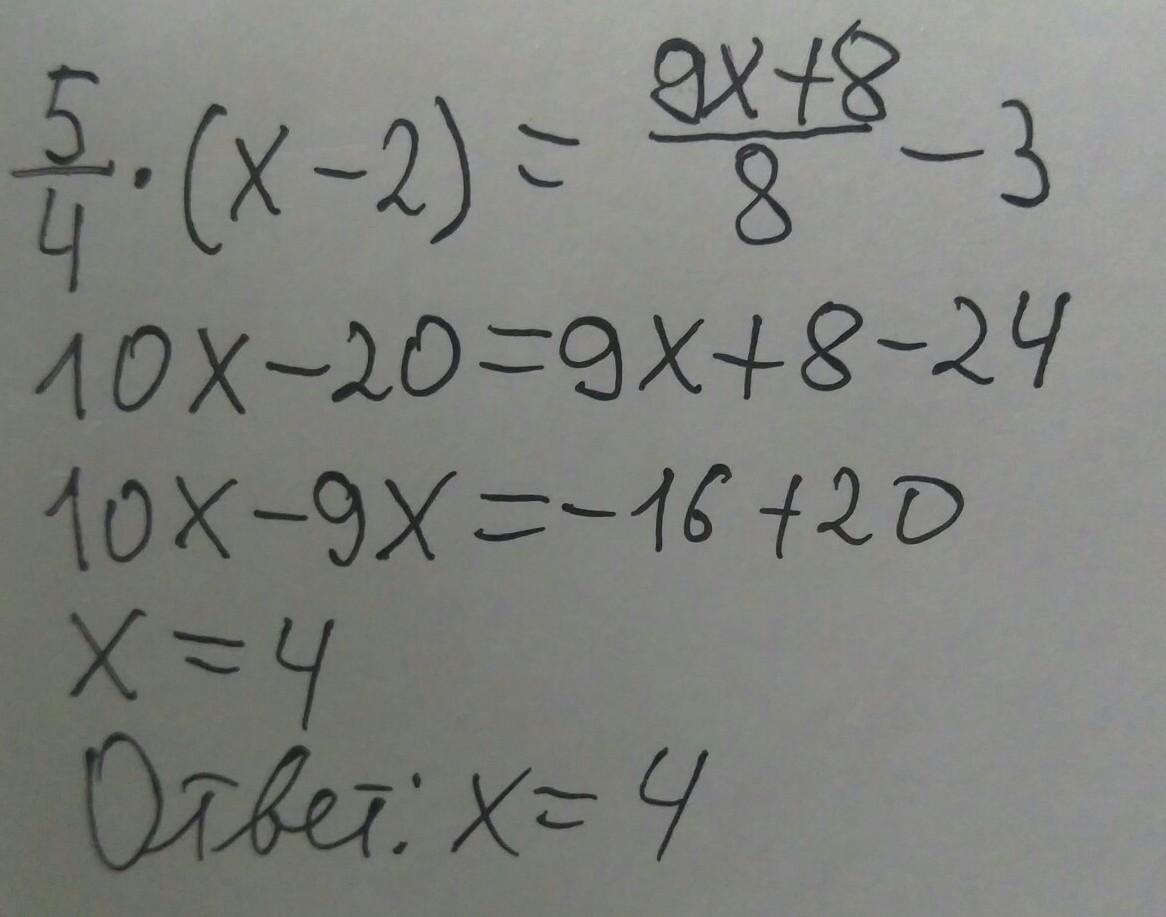 5/4 · (x - 2) = (9x+8)/8 - 3
10x - 20 = 9x + 8 - 24
10x - 9x = -16 + 20
x = 4
Ответ: x = 4